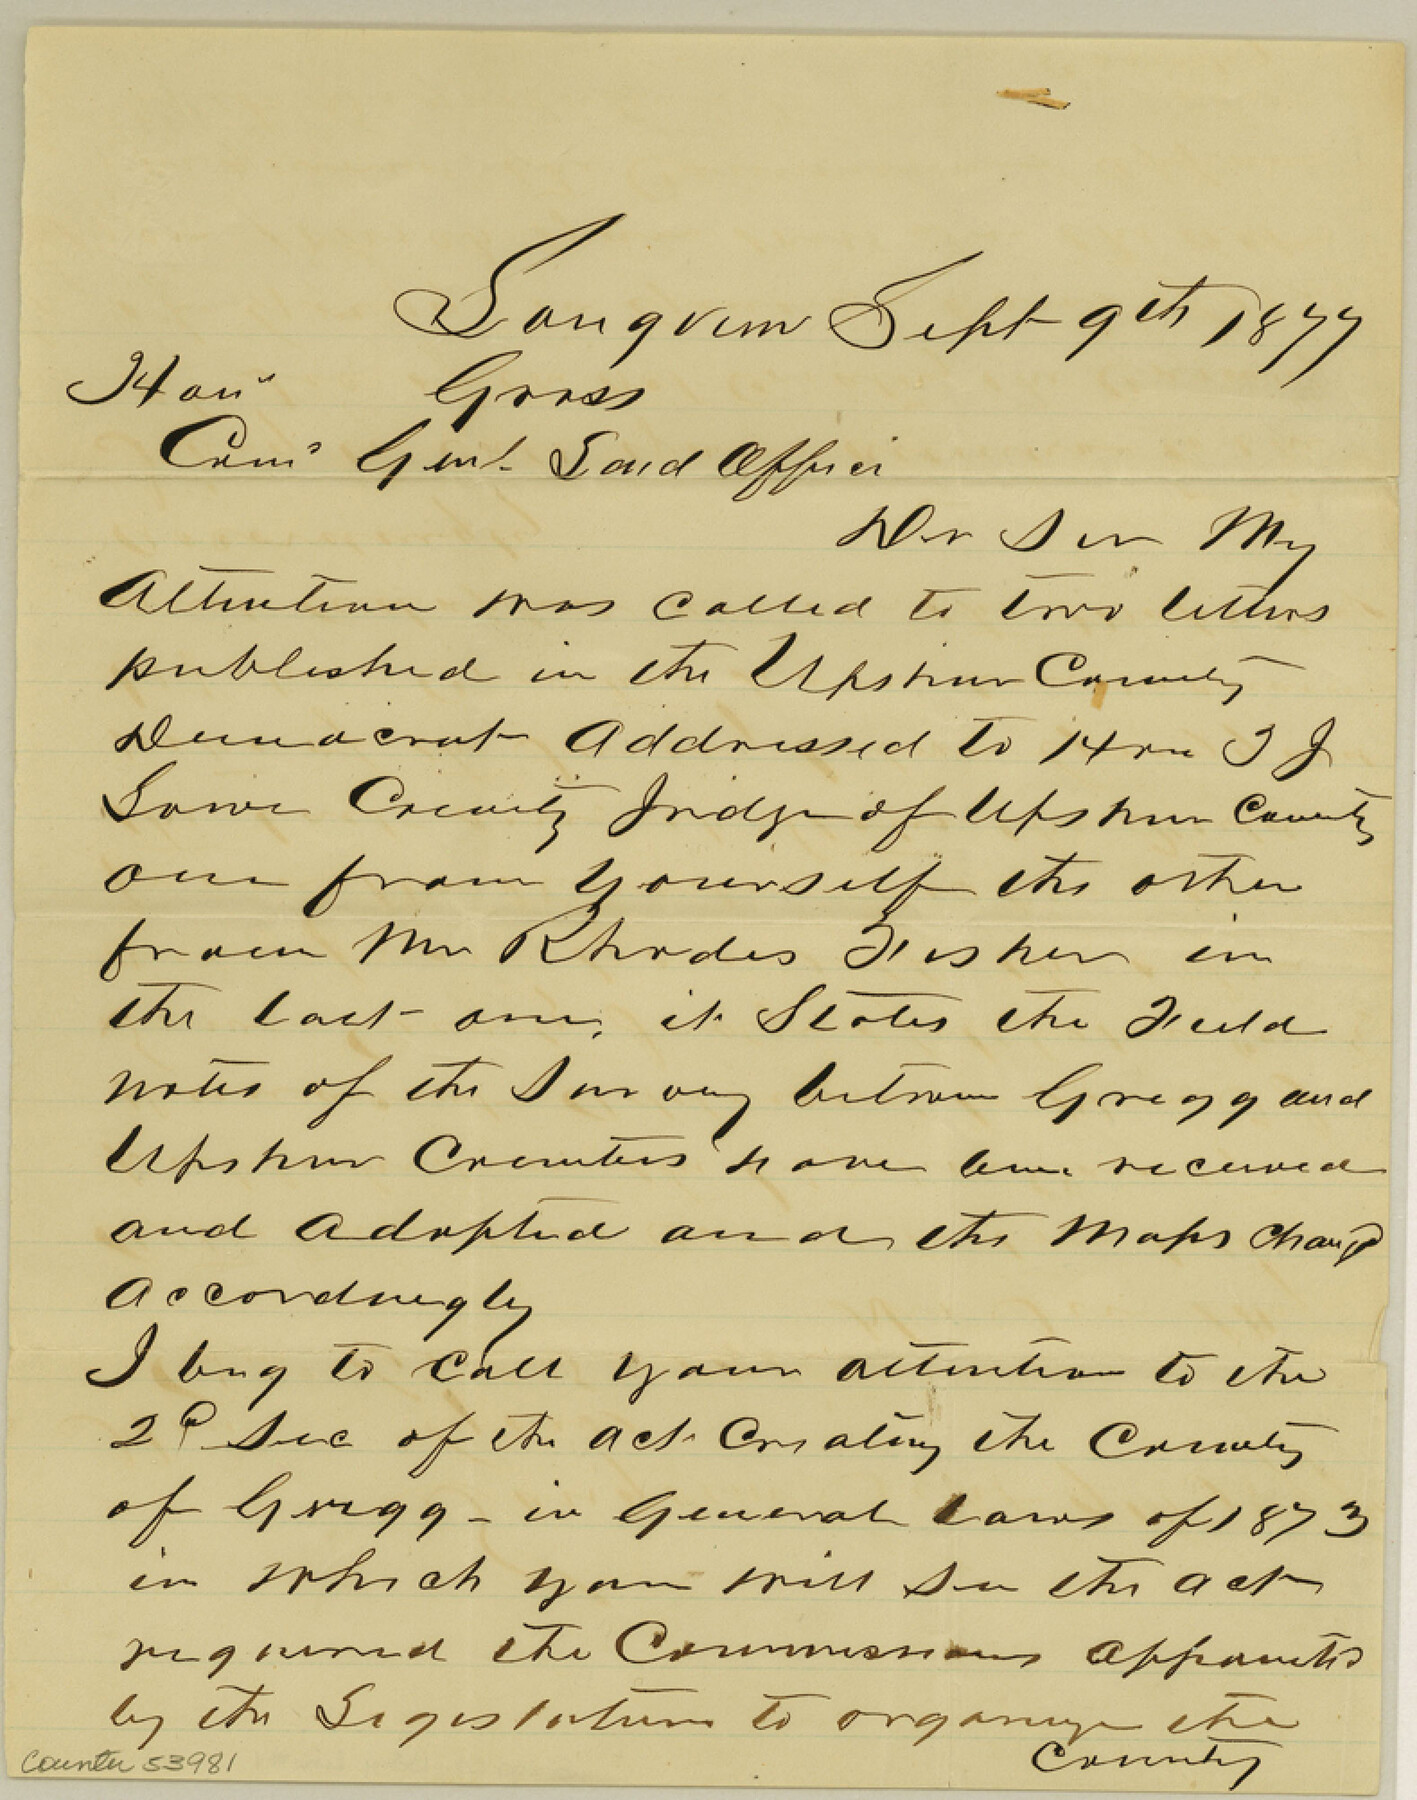 Longview Sept 9th 1877
Hon Gross
Com Genl Land Office
Dr Sir My
Attention was called to two letters
published in the Upshur County
Democrat Addressed to Hon T J
Lowe County Judge of Upshur County
one from yourself the other
from Mr Rhodes Fisher in
the last one, it States the Field
notes of the Survey between Gregg and
Upshur Counties have been received
and adopted and the Maps changd
accordingly
I beg to call your attention to the
2d Sec of the act Creating the County
of Gregg - in General Laws of 1873
in which you will see the act
required the Commissions appointed
by the Legislature to organize the
County
Counter 53981